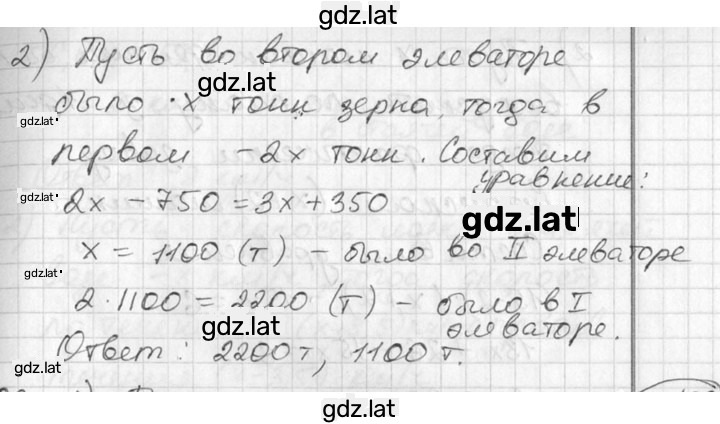 gdz.lat
2) Пусть во втором элеваторе
gdz.lat
было х тонн зерна, тогда в
gdz.lat
первом - 2х тонн. Составим
уравнение:
gdz.lat
2х - 750 = 3х + 350
gdz.lat
х = 1100 (т) - было во II элеваторе
gdz.lat
2 · 1100 = 2200 (т) - было в I
элеваторе.
gdz.lat
Ответ: 2200 т, 1100 т.
gdz.lat
gdz.lat